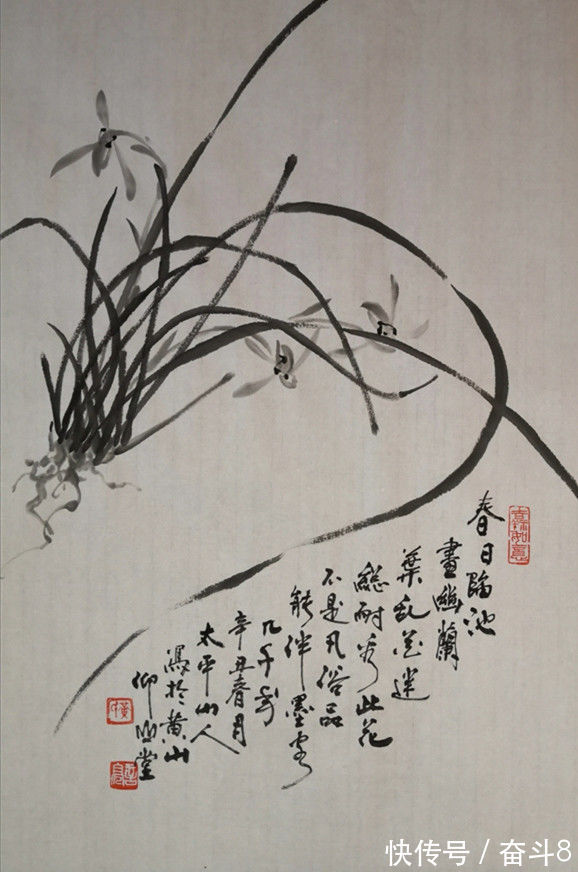 春日臨池
畫幽蘭
葉乱花迷
總耐看此花
不是凡俗品
能伴墨客
几千年
辛丑春月
太平山人
寫於黄山
仰山堂
快传号 / 奋斗8